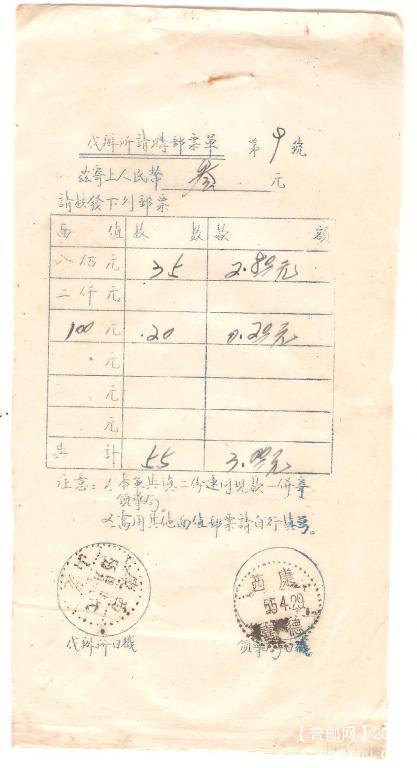 代辦所請購郵票單 第9號
茲寄上人民幣 叁 元
請核發下列郵票
面值 枚數 款額
八佰元 35 2.80元
二仟元
100元 20 0.20元
元
元
元
共計 55 3.00元
注意：1.本單共填二份連同現款一併寄
領導局
2.需用其他面值郵票請自行填寫
西康
55.4.29
德
代辦所日戳
領導局日戳
【普邮网】20